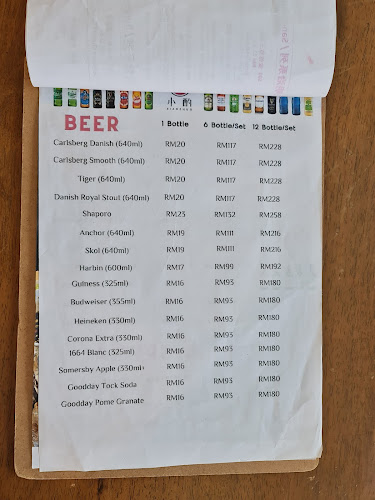 小酌
BEER 1 Bottle 6 Bottle/Set 12 Bottle/Set
Carlsberg Danish (640ml) RM20 RM117 RM228
Carlsberg Smooth (640ml) RM20 RM117 RM228
Tiger (640ml) RM20 RM117 RM228
Danish Royal Stout (640ml) RM20 RM117 RM228
Shaporo RM23 RM132 RM258
Anchor (640ml) RM19 RM111 RM216
Skol (640ml) RM19 RM111 RM216
Harbin (600ml) RM17 RM99 RM192
Guiness (325ml) RM16 RM93 RM180
Budweiser (355ml) RM16 RM93 RM180
Heineken (330ml) RM16 RM93 RM180
Corona Extra (330ml) RM16 RM93 RM180
1664 Blanc (325ml) RM16 RM93 RM180
Somersby Apple (330ml) RM16 RM93 RM180
Goodday Tock Soda RM16 RM93 RM180
Goodday Pome Granate RM16 RM93 RM180